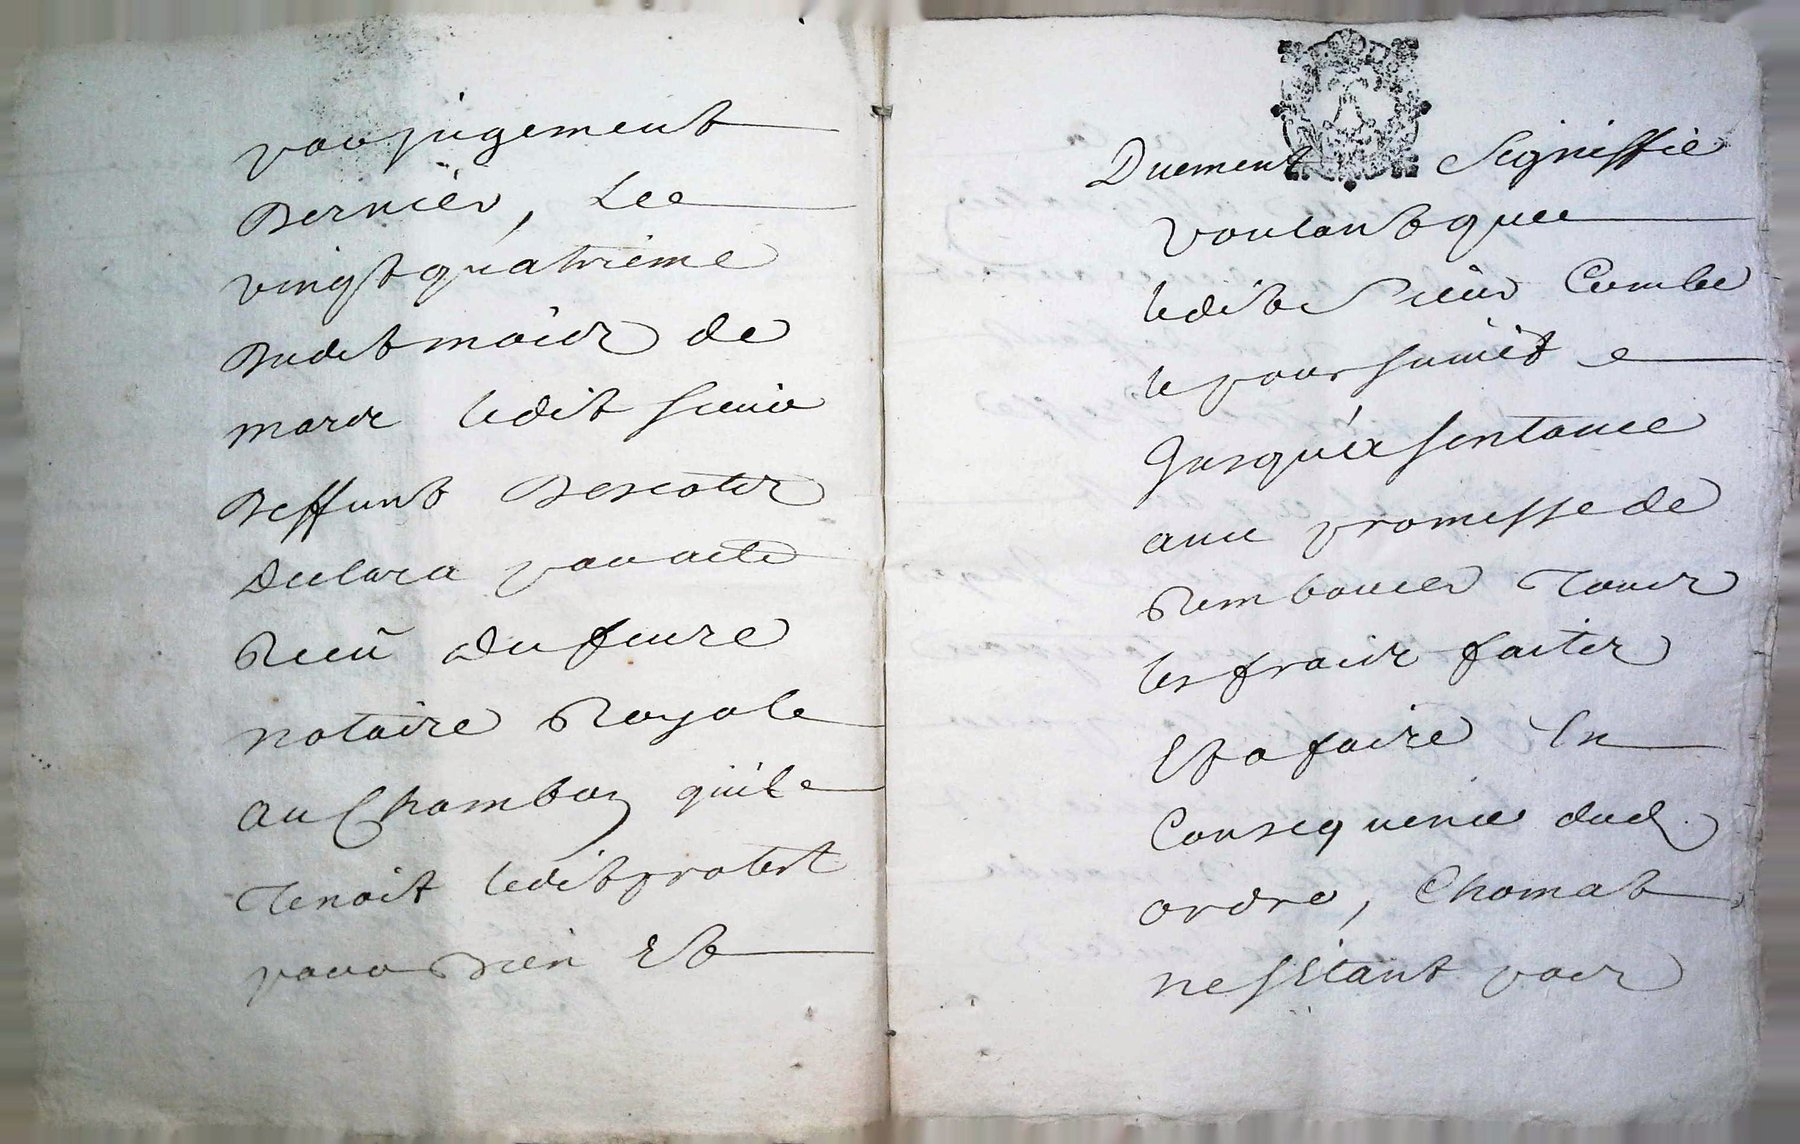 par jugement
dernier, Le
vingt quatrieme
dudit mois de
mars ledit sieur
deffunt Descotes
declara par acte
Receu Dufeure
notaire Royale
au Chambon quil
Tenoit ledit protest
pour bien Et
Duement Signiffié
voulant que
ledit Sieur Combe
le poursuivit
Jusqu'a sentance
avec promesse de
Rembourcer Tous
les frais faites
Et a faire En
Consequence dud.
ordre, Chomat
ne sEtant pas